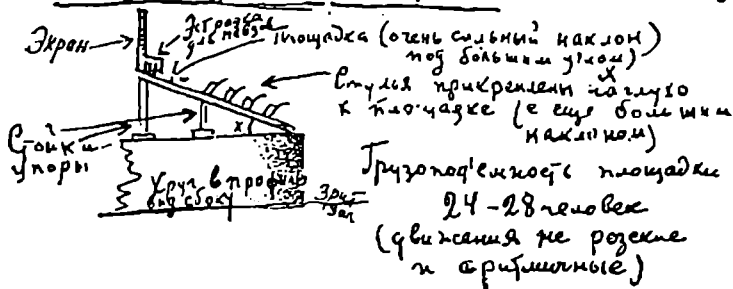 Экран
для
Площадка (очень сильный наклон)
под большим углом)
Стулья прикреплены наглухо
к площадке (с еще большим
наклоном)
x
x
Стойки
упоры
Круг в профиль
вид сбоку
Зрит
зал
Грузопод'емность площадки
24-28 человек
(движения не резкие
и аритмичные)